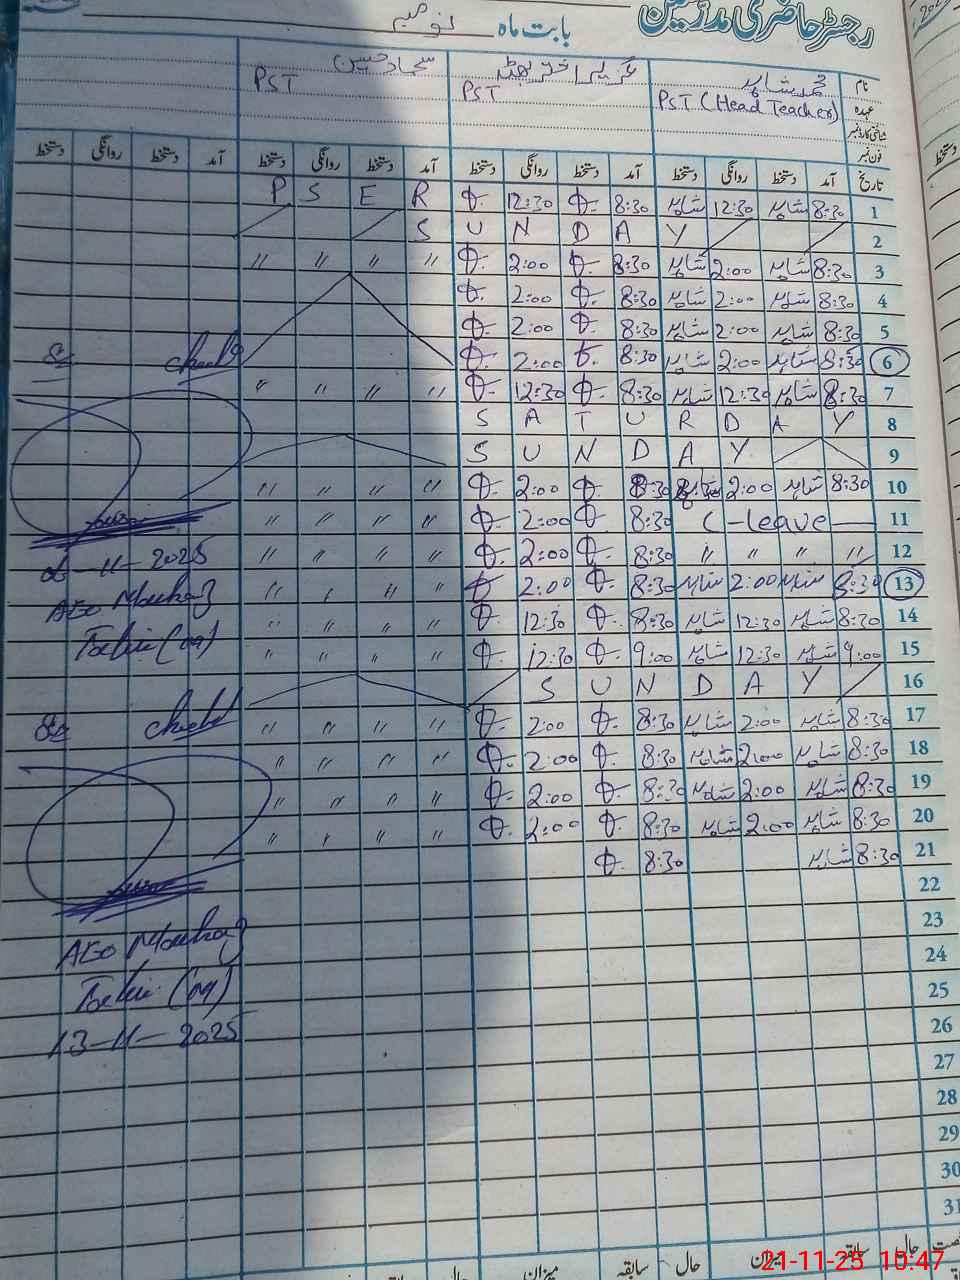 رجسٹر حاضری مدرسین
بابت ماہ نومبر
نام محمد شاہد سجاد حسین
عہدہ PST (Head Teacher) PST PST
شناختی کارڈ نمبر
فون نمبر
تاریخ آمد دستخط روانگی دستخط آمد دستخط روانگی دستخط آمد دستخط روانگی دستخط آمد دستخط روانگی دستخط
1 8:30 شاہد 12:30 شاہد 8:30 12:30 R E S P
2 S U N D A Y
3 8:30 شاہد 2:00 شاہد 8:30 2:00 " " " "
4 8:30 شاہد 2:00 شاہد 8:30 2:00
5 8:30 شاہد 2:00 شاہد 8:30 2:00
6 8:30 شاہد 2:00 شاہد 8:30 2:00
7 8:30 شاہد 12:30 شاہد 8:30 12:30 " " " "
8 S A T U R D A Y
9 S U N D A Y
10 8:30 شاہد 2:00 8:30 2:00 " " " "
11 (-leave 8:30 2:00 " " " "
12 " " " " 8:30 2:00 " " " "
13 8:30 شاہد 2:00 شاہد 8:30 2:00 " " " "
14 8:30 شاہد 12:30 شاہد 8:30 12:30 " " " "
15 9:00 شاہد 12:30 شاہد 9:00 12:30 " " " "
16 S U N D A Y
17 8:30 شاہد 2:00 شاہد 8:30 2:00 " " " "
18 8:30 شاہد 2:00 شاہد 8:30 2:00 " " " "
19 8:30 شاہد 2:00 شاہد 8:30 2:00 " " " "
20 8:30 شاہد 2:00 شاہد 8:30 2:00 " " " "
21 8:30 شاہد 8:30
22
23
24
25
26
27
28
29
30
31
06-11-2025
AEO
13-11-2025
AEO
حال سابقہ میزان حال سابقہ میزان حال سابقہ
21-11-25 10:47